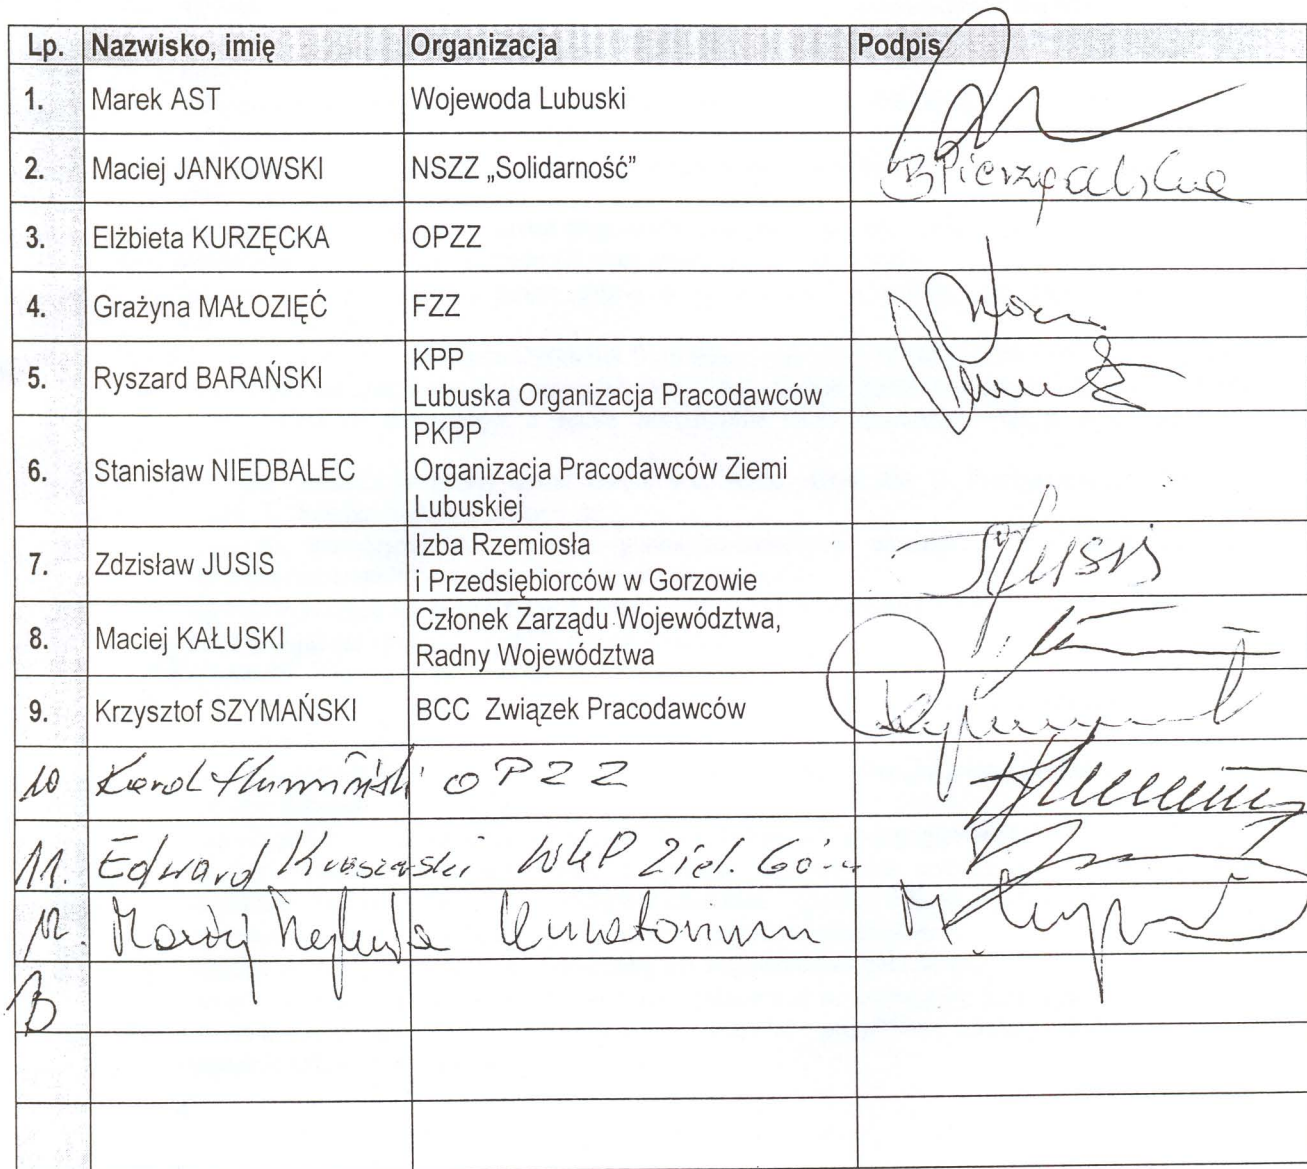 Lp. Nazwisko, imię Organizacja Podpis
1. Marek AST Wojewoda Lubuski
2. Maciej JANKOWSKI NSZZ „Solidarność”
3. Elżbieta KURZĘCKA OPZZ
4. Grażyna MAŁOZIĘĆ FZZ
5. Ryszard BARAŃSKI KPP
Lubuska Organizacja Pracodawców
6. Stanisław NIEDBALEC PKPP
Organizacja Pracodawców Ziemi
Lubuskiej
7. Zdzisław JUSIS Izba Rzemiosła
i Przedsiębiorców w Gorzowie
Jusis
8. Maciej KAŁUSKI Członek Zarządu Województwa,
Radny Województwa
9. Krzysztof SZYMAŃSKI BCC Związek Pracodawców
10 Karol OPZZ
11. Edward WKP Ziel. Góra
12. Maciej Kuratorium
13